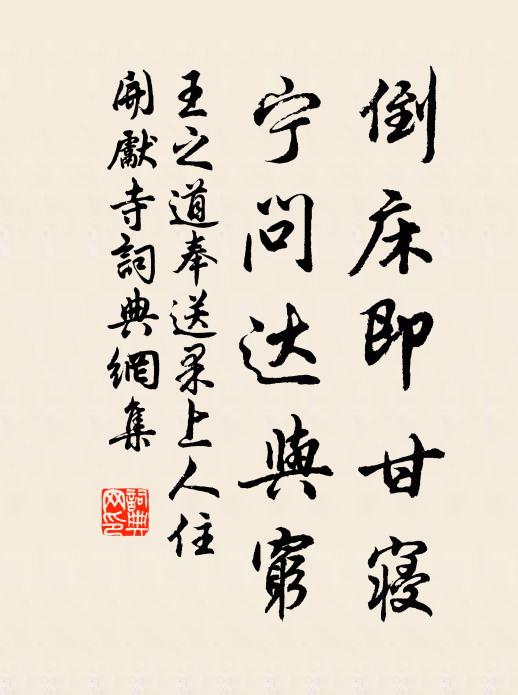 倒床即甘寝
宁问达與窮
王之道奉送杲上人住
開獻寺詞典網集
詞典网印